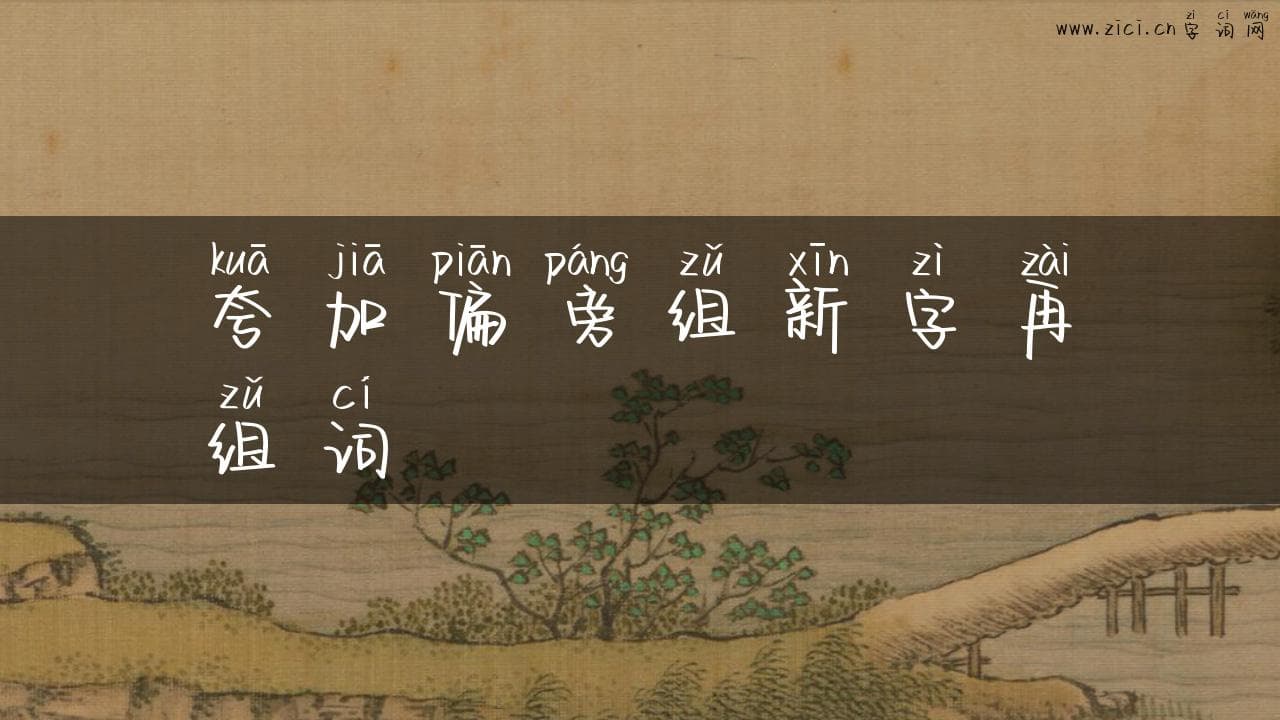 zì cí wǎng
www.zici.cn字词网
kuā jiā piān páng zǔ xīn zì zài
夸加偏旁组新字再
zǔ cí
组词